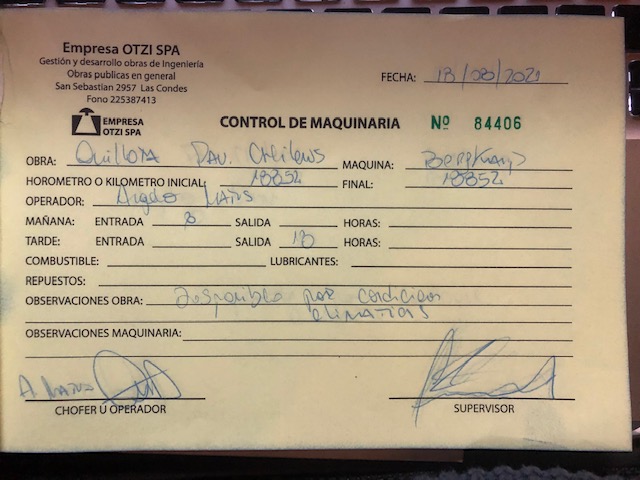 Empresa OTZI SPA
Gestión y desarrollo obras de Ingeniería
Obras publicas en general
San Sebastian 2957 Las Condes
Fono 225387413
FECHA: 13/08/2021
EMPRESA
OTZI SPA
CONTROL DE MAQUINARIA
Nº 84406
OBRA: Quillota Pav. MAQUINA:
HOROMETRO O KILOMETRO INICIAL: 18852 FINAL: 18852
OPERADOR:
MAÑANA: ENTRADA 8 SALIDA HORAS:
TARDE: ENTRADA SALIDA 18 HORAS:
COMBUSTIBLE: LUBRICANTES:
REPUESTOS:
OBSERVACIONES OBRA: Disponible por condicion
climaticas
OBSERVACIONES MAQUINARIA:
CHOFER U OPERADOR
SUPERVISOR